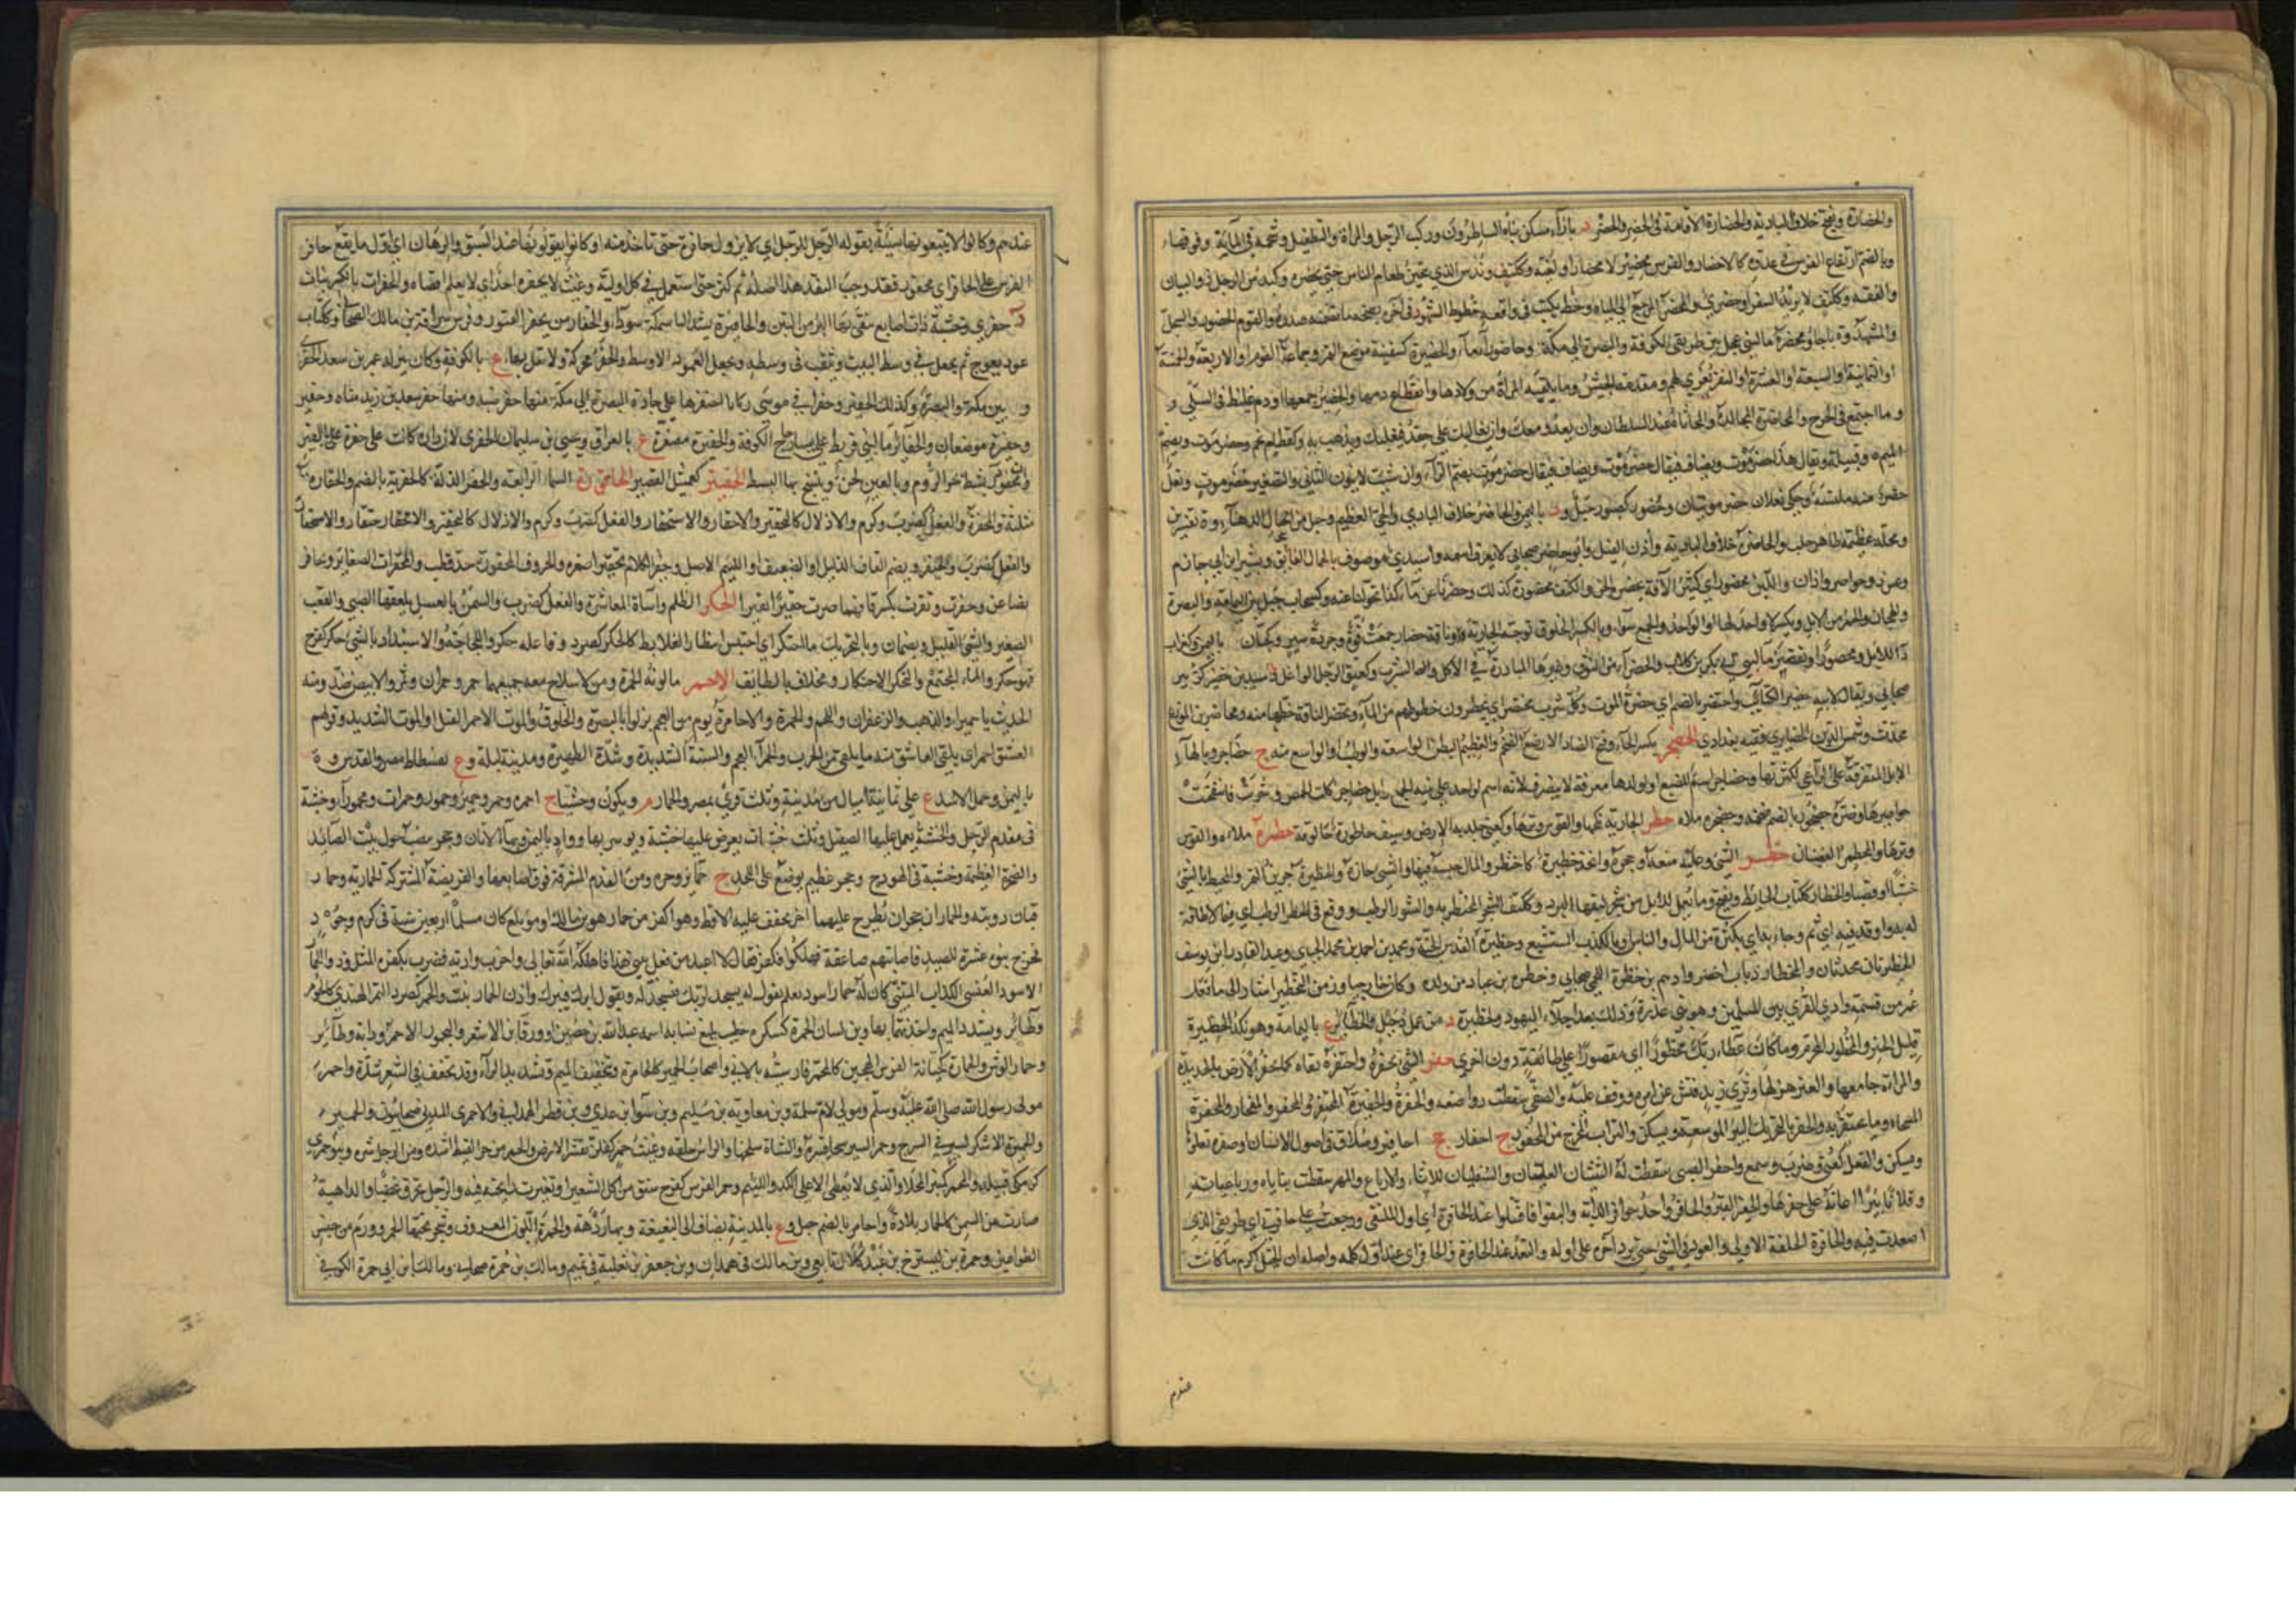 والحضارة ويفتح خلاف البادية والحضارة الاقامة في الحضر والحضر د بازاء مسكن بناه الساطرون وركب الرجل والمرأة والتطفيل وشحمة في المأنة وفوقها
وبالضم ارتفاع الفرس في عدوه كالاحضار والفرس محضير لا محضار او لغية وككتف وندس الذي يتحين طعام الناس حتى يحضره وكندس الرجل ذو البيان
والفقه وككتف لا يريد السفر او حضري والمحضر المرجع الى المياه وخط يكتب في واقعة خطوط الشهود في آخره بصحة ما تضمنه صدره والقوم الحضور والسجل
والمشهد وة باجأ ومحضرة ماء لبني عجل بين طريقي الكوفة والبصرة الى مكة وحاضوراء ماء والحضيرة كسفينة موضع التمر وجماعة القوم او الاربعة او الخمسة
او الثمانية او السبعة او العشرة او النفر يغزى بهم ومقدمة الجيش وما تلقيه المرأة من ولادها وانقطاع دمها والحضير جمعها او دم غليظ في السلى و
وما اجتمع في الجرح والمحاضرة المجالدة والمجاثاة عند السلطان وان يعدو معك وان يغالبك على حقك فيغلبك ويذهب به وكقطام نجم وحضرموت وبضم
الميم ه وقبيلة ويقال هذا حضرموت ويضاف فيقال حضرموت بضم الراء وان شئت لا تنون الثاني والتصغير حضيرموت ونعل
حضرمي ملسنة وحكي نعلان حضرموتيتان وحضور كصبور جبل ود باليمن والحاضر خلاف البادي والحي العظيم وحبل من احبال الدهناء وة بقنسرين
ومحلة عظيمة بظاهر حلب والحاضرة خلاف البادية واذن الفيل وابو حاضر صحابي لا يعرف اسمه واسيدي موصوف بالجمال الفائق وبشر بن ابي حازم
وعس ذو حواضر ذو اذان واللبن محضور اي كثير الآفة تحضره الجن والكنف محضورة كذلك وحضرنا عن ماء كذا تحولنا عنه وكسحاب جبل بين اليمامة والبصرة
والهجان والحمر من الابل ويكسر لا واحد لها او الواحد والجمع سواء وبالكسر الخلوق بوجه الجارية وناقة حضار جمعت قوة وجودة سير وكجبان باليمن وكغراب
داء للابل ومحضوراء ويقصر ماء لبني ابي بكر بن كلاب والحضراء من النوق وغيرها المبادرة في الاكل والشرب وكعنق الرجل الواغل واسيد بن حضير كزبير
صحابي ويقال لابيه حضير الكتائب واحتضر بالضم اي حضره الموت وكل شرب محتضر اي يحضرون حظوظهم من الماء وتحضر الناقة حظها منه ومحاضر بن المورع
محدث وشمس الدين الحضائري فقيه بغدادي الحضجر بكسر الحاء وفتح الضاد الارضع الضخم والعظيم البطن الواسعه والوطب او الواسع منه ج حضاجر وبالهاء
الابل المتفرقة على الراعي لكثرتها وحضاجر اسم للضبع او لولدها معرفة لا ينصرف لانه اسم لواحد على بنية الجمع وابل حضاجر اكلت الحمض وشربت فانتفخت
خواصرها وضرة حضجور بالضم ضخمه وحضجره ملأه حطر الجارية نكحها والقوس وترها وكعني جلد به الارض وسيف حالوطة كحالوقة حطمره ملأه والقوس
وترها والمحطمر الغضبان حظر الشيء وعليه منعه وحجره واتخذ حظيرة كاحتظر والمال حبسه فيها والشيء حازه والحظيرة جرين التمر والمحيط بالشيء
خشبا او قصبا والحظار ككتاب الحائط ويفتح وما يعمل للابل من شجر ليقيها البرد وككتف الشجر المحتظر به والشوك الرطب ووقع في الحظر الرطب اي فيما لا طاقة
له به واوقد فيه اي نم وجاء به اي بكثرة من المال والناس او بالكذب المستشنع وحظيرة القدس الجنة ومحمد بن احمد بن محمد الجبي وعبد القادر بن يوسف
الحظيريان محدثان والمحظار ذباب اخضر وادهم بن حظرة اللخمي صحابي وحظرة بن عباد من ولده وكان خارجيا وزمن التحظير اشارة الى ما فعل
عمر من قسمة وادي القرى بين المسلمين وهو بني عذرة وذلك بعد اجلاء اليهود والحظيرة د من عمل دجيل والحظائر ع باليمامة وهو نكد الحظيرة
قليل الخير والمحظور المحرم وما كان عطاء ربك محظورا اي مقصورا على طائفة دون اخرى حفر الشيء يحفره واحتفره نقاه كما يحفر الارض بالحديدة
والمرأة جامعها والعنز هزلها وثرى زيد فتش عن امره ووقف عليه والصبي سقطت رواضعه والحفرة والحفيرة المحتفر والمحفر والمحفار والمحفرة
المسحاة وما يحتفر به والحفر بالتحريك البئر الموسعة ويسكن والتراب المخرج من المحفور ج احفار جج احافير وسلاق في اصول الاسنان او صفرة تعلوها
ويسكن والفعل كعني وضرب وسمع واحفر الصبي سقطت له الثنيتان العلييان والسفليان للاثناء والارباع والمهر سقطت ثناياه ورباعياته
وفلانا بئرا اعانه على حفرها والحفير القبر والحافر واحد حوافر الدابة والتقوا فاقتتلوا عند الحافرة اي اول الملتقى ورجعت على حافرتي اي طريقي الذي
اصعدت فيه والحافرة الخلقة الاولى والعود في الشيء حتى يرد آخره على اوله والنقد عند الحافرة والحافر اي عند اول كلمة واصله ان الخيل اكرم ما كانت
عندهم
عندهم وكانوا لا يبيعونها نسيئة يقوله الرجل للرجل اي لا يزول حافره حتى تأخذ ثمنه او كانوا يقولونها عند السبق والرهان اي اول ما يقع حافر
الفرس على الحافر اي المحفور فقد وجب النقد هذا اصله ثم كثر حتى استعمل في كل اولية وغيث لا يحفره احد اي لا يعلم اقصاه والحفراة بالكسر نبات
ج حفرى وخشبة ذات اصابع ينقى بها البر من التبن والحافيرة بشد الياء سمكة سوداء والحفار من يحفر القبور وفرس سراقة بن مالك الصحابي وككتاب
عود يعوج ثم يجعل في وسط البيت ويثقب في وسطه ويجعل العمود الاوسط والحفر محركة ولا تقل بهاء ع بالكوفة كان ينزله عمر بن سعد الحفري
و بين مكة والبصرة وكذلك الحفير وحفر ابي موسى ركايا احتفرها على جادة البصرة الى مكة منها حفر ضبة ومنها حفر سعد بن زيد مناة وحفير
وحفيرة موضعان والحفائر ماء لبني قريط على يسار حاج الكوفة والحفيرة مصغرة ع بالعراق ويحيى بن سليمان الحفري لان داره كانت على حفرة على القير
والمحفور ة بشط بحر الروم وبالعين لحن وينسج بها البسط الحفيتر كعميثل القصير الحاقورة السماء الرابعة والحقر الذلة كالحقرية بالضم والحقارة
مثلثة والمحقرة والفعل كضرب وكرم والاذلال كالتحقير والاحتقار والاستحقار والفعل كضرب
والفعل كضرب والحيقر ويضم القاف الذليل او الضعيف او اللئيم الاصل وحقر الكلام تحقيرا صغره والحروف المحقورة جد قطب والمحقرات الصغائر وتحاقر
تصاغر وحقرت ونقرت بكسر قافهما صرت حقيرا نقيرا الحكر الظلم واساءة المعاشرة والفعل كضرب والسمن بالعسل يلعقها الصبي والقعب
الصغير والشيء القليل ويضمان وبالتحريك ما احتكر اي احتبس انتظارا لغلائه كالحكر كصرد وفاعله حكر واللجاجة والاستبداد بالشيء حكر كفرح
فهو حكر والماء المجتمع والتحكر الاحتكار ومخلاف بالطائف الاحمر ما لونه الحمرة ومن لا سلاح معه جمعهما حمر وحمران وتمر والابيض ضد ومنه
الحديث يا حميراء والذهب والزعفران واللحم والخمر والاحامرة قوم من العجم نزلوا بالبصرة والخلوق والموت الاحمر القتل او الموت الشديد وقولهم
الحسن احمر اي يلقى العاشق منه ما يلقى من الحرب والحمراء العجم والسنة الشديدة وشدة الظهيرة ومدينة لبلة وع بفسطاط مصر وبالقدس وة
باليمن وحمراء الاسد ع على ثمانية اميال من المدينة وثلاث قرى بمصر والحمار م ويكون وحشيا ج احمرة وحمر وحمير وحمور وحمرات ومحموراء وخشبة
في مقدم الرحل والخشبة يعمل عليها الصيقل وثلاث خشبات يعرض عليها خشبة ويوسر بها وواد باليمن وبهاء الاتان وحجر ينصب حول بيت الصائد
والصخرة العظيمة وخشبة في الهودج وحجر عظيم يوضع على اللحد ج حمائر وحرة ومن القدم المشرفة فوق اصابعها والفريضة المشتركة الحمارية وحمار
قبان دويبة والحماران حجران يطرح عليهما آخر يجفف عليه الاقط وهو اكفر من حمار هو بن مالك او مويلع كان مسلما اربعين سنة في كرم وجود
فخرج بنوه عشرة للصيد فاصابتهم صاعقة فهلكوا فكفر وقال لا اعبد من فعل ببني هذا فاهلكه الله تعالى واخرب واديه فضرب بكفره المثل وذو الحمار
الاسود العنسي الكذاب المتنبي كان له حمار اسود معلم يقول له اسجد لربك فيسجد له ويقول ابرك فيبرك واذن الحمار نبت والحمر كصرد التمر الهندي كالحومر
وطائر ويشدد الميم واحدتهما بهاء وابن لسان الحمرة كسكرة خطيب بليغ نسابة اسمه عبد الله بن حصين او ورقاء بن الاشعر واليحمور الاحمر ودابة وطائر
وحمار الوحش والحمارة كجبانة الفرس الهجين كالمحمر فارسيته بالاني واصحاب الحمير كالحامرة وتخفيف الميم وتشديد الراء وقد تخفف في الشعر شدة واحمر
مولى رسول الله صلى الله عليه وسلم ومولى لام سلمة وابن معاوية بن سليم وابن سواء بن عدي وابن قطن الهمداني والاحمري المدني صحابيون والحمير
والحميرة الاشكز لسير في السرج وحمر السير سحا قشره والشاة سلخها والرأس حلقه وغيث حمر كفلز يقشر الارض والحمر من حر القيظ اشده ومن الرجل شره وبنو حمرى
كزمكى قبيلة والمحمر كمنبر المحلأ والذي لا يعطي الا على الكد واللئيم وحمر الفرس كفرح سنق من اكل الشعير او تغيرت رائحة فيه والرجل تحرق غضبا والدابة
صارت من السمن كالحمار بلادة واحامر بالضم جبل وع بالمدينة يضاف الى البغيبغة وبهاء ردهة والحمرة اللون المعروف وشجرة تحبها الحمر وورم من جنس
الطواعين وحمرة بن ليشرح بن عبد كلال تابعي وابن مالك في همدان وابن جعفر بن ثعلبة في تميم ومالك بن حمرة صحابي ومالك بن ابي حمرة الكوفي